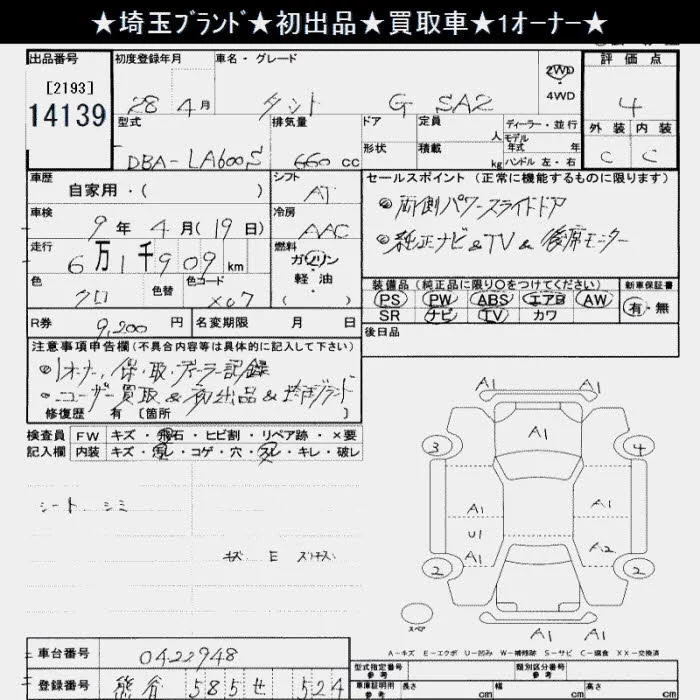 ★埼玉ブランド★初出品★買取車★1オーナー★
出品番号 初度登録年月 車名・グレード 2WD 評価点
[2193]
14139 28 4月 タント G SA2 4WD 4
型式 排気量 ドア 定員 人 ディーラー・並行 外装 内装
モデル年式 年
DBA-LA600S 660 cc 形状 積載 kg ハンドル 左・右 C C
車歴 シフト セールスポイント (正常に機能するものに限ります)
自家用・( ) AT ・両側パワースライドドア
車検 冷房
9年 4月(19日) AAC ・純正ナビ&TV&後席モニター
走行 燃料
6万1千909km ガソリン
軽油
( )
色 色替 色コード 装備品(純正品に限り○をつけてください) 新車保証書
クロ X07 PS PW ABS エアB AW 有・無
SR ナビ TV カワ
R券 9,200円 名変期限 月 日 後日品
注意事項申告欄(不具合内容等は具体的に記入して下さい)
・1オーナー、保・取・ディーラー記録
・ユーザー買取&初出品&埼玉ブランド
修復歴 有 [箇所 ]
検査員 FW キズ・飛石・ヒビ割・リペア跡・×要
記入欄 内装 キズ・汚レ・コゲ・穴・スレ・キレ・破レ
シート シミ
キズ E
A1 A1
A1
3 4
A1 A1
U1
A1 A2
2 2
スペア A1 A1
A-キズ E-エクボ U-凹み W-補修跡 S-サビ C-腐食 XX-交換済
車台番号 0422948 型式指定番号 参考 類別区分番号 参考
登録番号 熊谷 585 せ 524 車庫証明用 参考 長さ cm 幅 cm 高さ cm